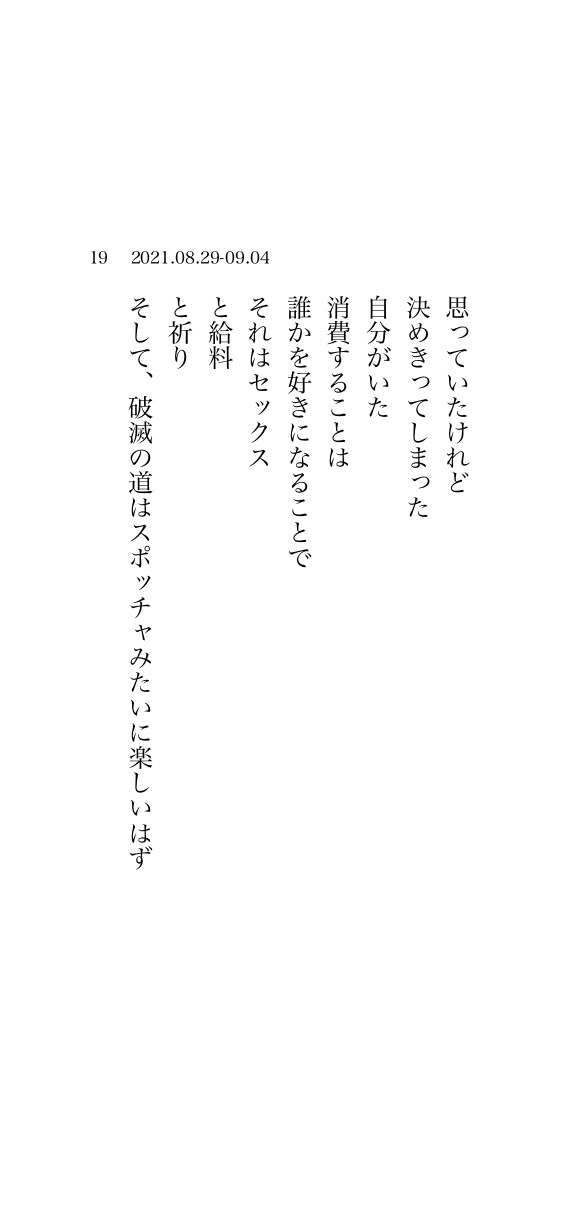 19 2021.08.29-09.04
思っていたけれど
決めきってしまった
自分がいた
消費することは
誰かを好きになることで
それはセックス
と給料
と祈り
そして、破滅の道はスポッチャみたいに楽しいはず